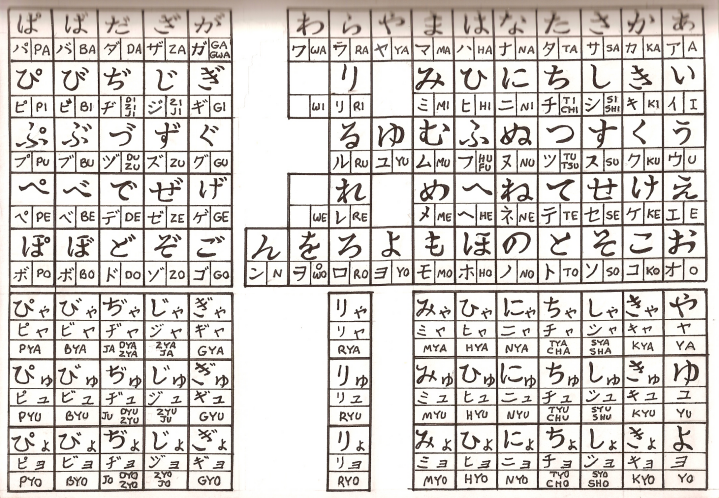 ぱ ば だ ざ が わ ら や ま は な た さ か あ
パ PA バ BA ダ DA ザ ZA ガ GA GWA ワ WA ラ RA ヤ YA マ MA ハ HA ナ NA タ TA サ SA カ KA ア A
ぴ び ぢ じ ぎ り み ひ に ち し き い
ピ PI ビ BI ヂ DI ZI JI ジ ZI JI ギ GI WI リ RI ミ MI ヒ HI ニ NI チ TI CHI シ SI SHI キ KI イ I
ぷ ぶ づ ず ぐ る ゆ む ふ ぬ つ す く う
プ PU ブ BU ヅ DU ZU ズ ZU グ GU ル RU ユ YU ム MU フ HU FU ヌ NU ツ TU TSU ス SU ク KU ウ U
ぺ べ で ぜ げ れ め へ ね て せ け え
ペ PE ベ BE デ DE ゼ ZE ゲ GE WE レ RE メ ME ヘ HE ネ NE テ TE セ SE ケ KE エ E
ぽ ぼ ど ぞ ご ん を ろ よ も ほ の と そ こ お
ポ PO ボ BO ド DO ゾ ZO ゴ GO ン N ヲ O WO ロ RO ヨ YO モ MO ホ HO ノ NO ト TO ソ SO コ KO オ O
ぴゃ びゃ ぢゃ じゃ ぎゃ りゃ みゃ ひゃ にゃ ちゃ しゃ きゃ や
ピャ ビャ ヂャ ジャ ギャ リャ ミャ ヒャ ニャ チャ シャ キャ ヤ
PYA BYA JA DYA ZYA ZYA JA GYA RYA MYA HYA NYA TYA CHA SYA SHA KYA YA
ぴゅ びゅ ぢゅ じゅ ぎゅ りゅ みゅ ひゅ にゅ ちゅ しゅ きゅ ゆ
ピュ ビュ ヂュ ジュ ギュ リュ ミュ ヒュ ニュ チュ シュ キュ ユ
PYU BYU JU DYU ZYU ZYU JU GYU RYU MYU HYU NYU TYU CHU SYU SHU KYU YU
ぴょ びょ ぢょ じょ ぎょ りょ みょ ひょ にょ ちょ しょ きょ よ
ピョ ビョ ヂョ ジョ ギョ リョ ミョ ヒョ ニョ チョ ショ キョ ヨ
PYO BYO JO DYO ZYO ZYO JO GYO RYO MYO HYO NYO TYO CHO SYO SHO KYO YO